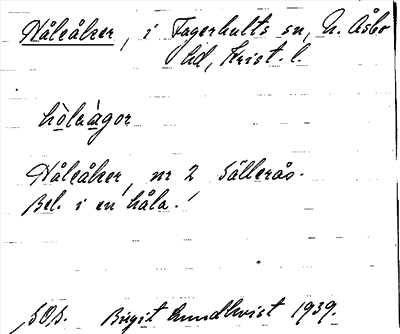 Håleåker, i Fagerhults sn, N. Åsbo
hd, Krist. l.
hòleàgor
Håleåker, nr 2 Sällerås.
Bel. i en håla.
SOS. Birgit Lundkvist 1939.